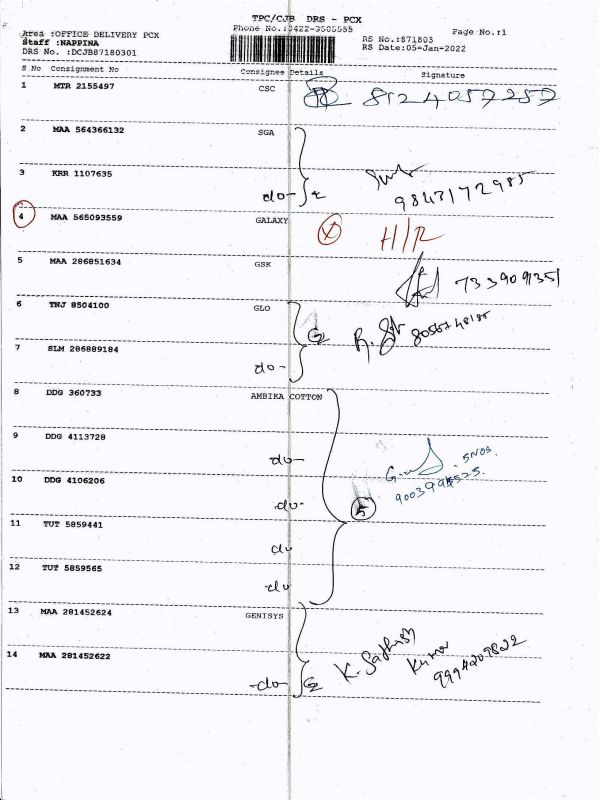 TPC/CJB DRS - PCX
Area :OFFICE DELIVERY PCX
Phone No.:0422-3505555
Page No.:1
Staff :NAPPINA
RS No.:871803
DRS No. :DCJB87180301
RS Date:05=Jan-2022
S No Consignment No Consignee Details Signature
1 MTR 2155497 CSC 8124057257
2 MAA 564366132 SGA
3 KRR 1107635 do- 2
9843172985
4 MAA 565093559 GALAXY X H/R
5 MAA 286851634 GSK 7339091351
6 TNJ 8504100 GLO 2
7 SLM 286889184 do-
8 DDG 360733 AMBIKA COTTON
9 DDG 4113728 do- 5NOS.
10 DDG 4106206 do- 5
11 TUT 5859441 do
12 TUT 5859565 do
13 MAA 281452624 GENISYS K. Sathish Kumar
14 MAA 281452622 -do- 2 9994209822